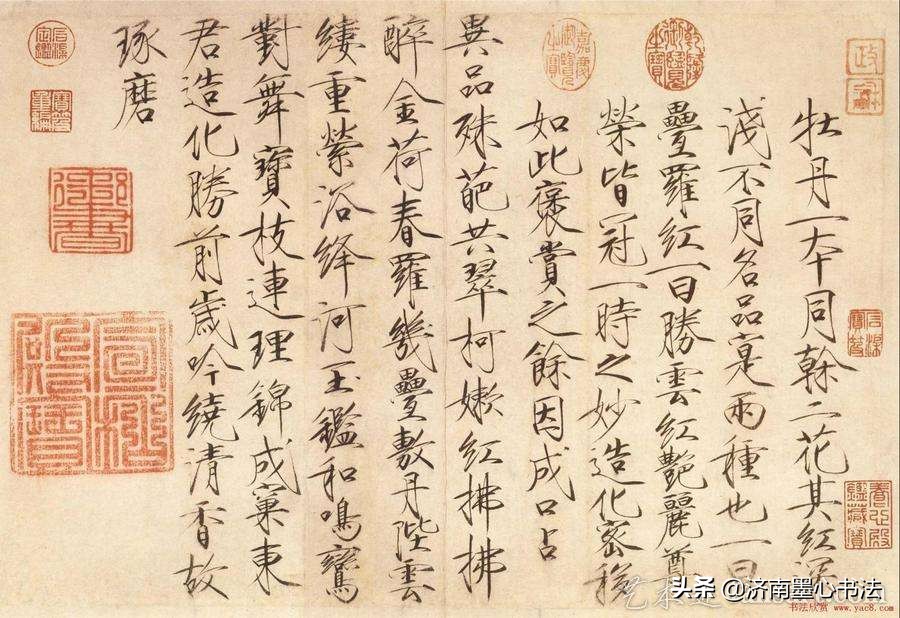 牡丹一本同榦二花其紅深
淺不同名品寔兩種也一曰
疊羅紅一曰勝雲紅艷麗尊
榮皆冠一時之妙造化密移
如此褒賞之餘因成口占
異品殊葩共翠柯嫩紅拂拂
醉金荷春羅幾疊敷丹陛雲
縷重縈浴絳河玉鑑和鳴鸞
對舞寶枝連理錦成窠東
君造化勝前歲吟繞清香故
琢磨
乾隆御覽之寶
嘉慶御覽之寶
養心殿鑑藏寶
头条 @济南墨心书法
书法欣赏 www.yac8.com